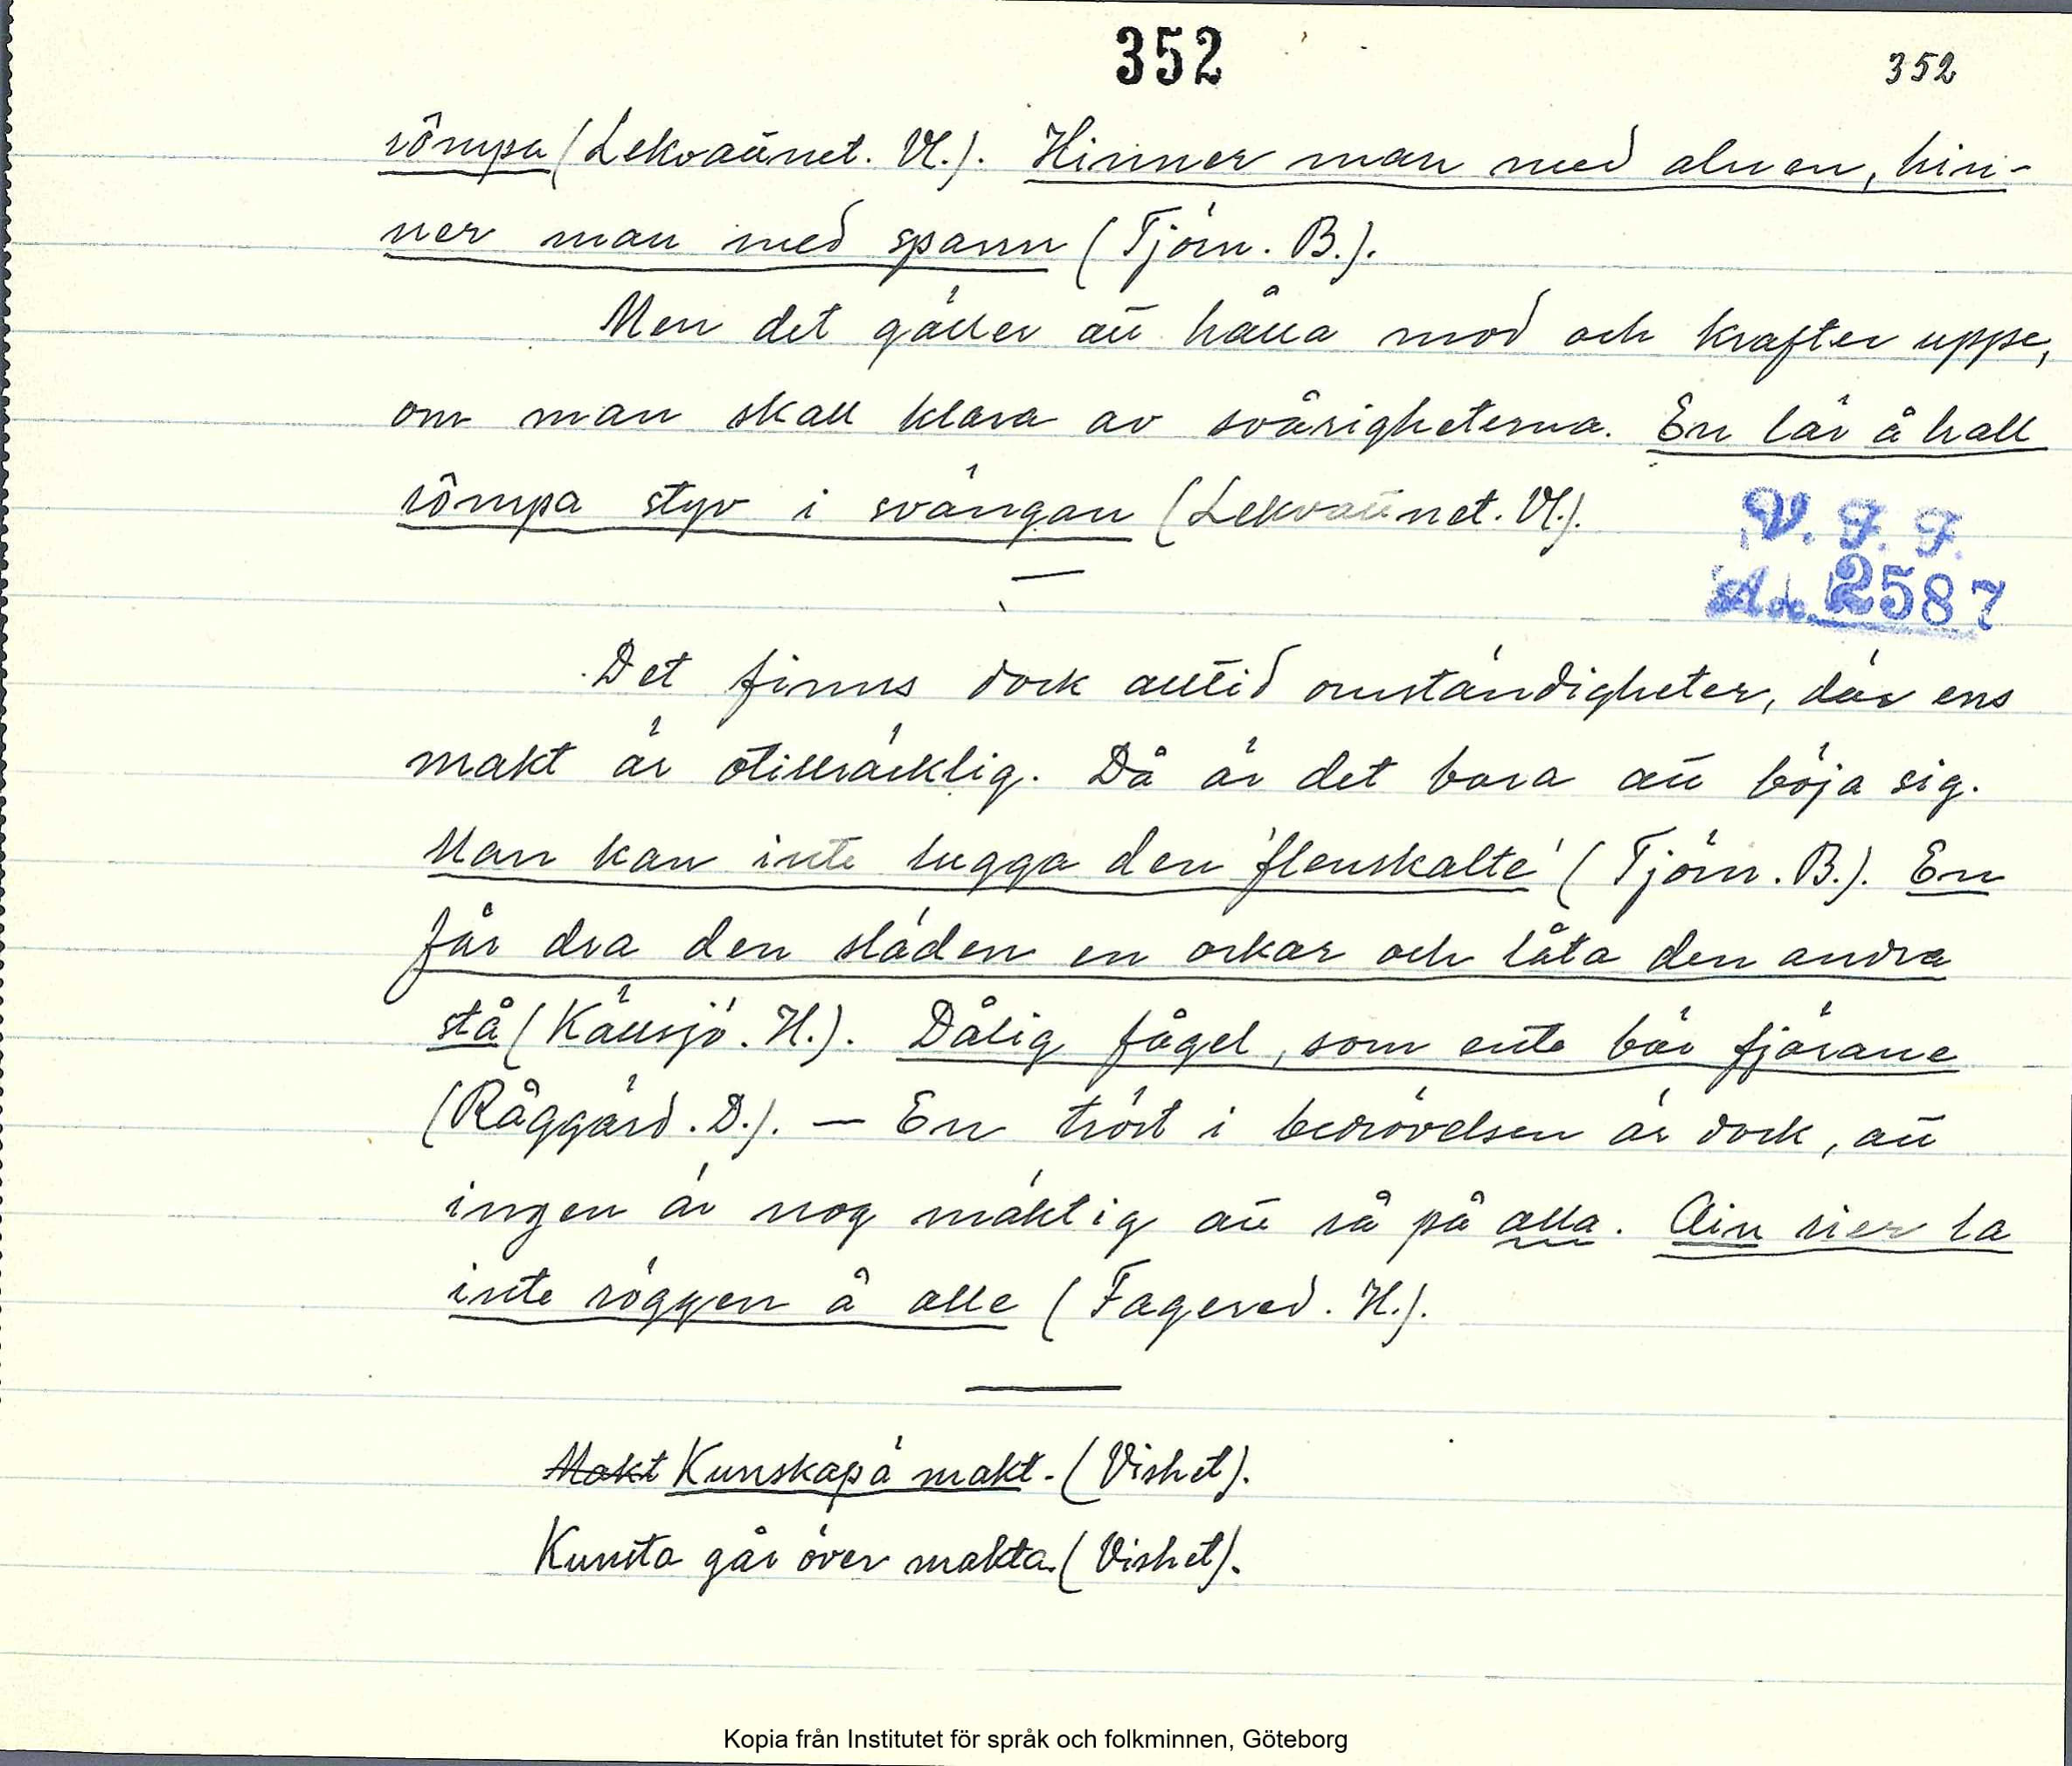 352
352
rômpa (Lekvattnet. Vl.). Hinner man med alnen, hin-
ner man med spann (Tjörn. B.).
Men det gäller att hålla mod och krafter uppe,
om man skall klara av svårigheterna. En lär å hall
rômpa styv i svängan (Lekvattnet. Vl.).
V. F. F.
Acc. 2587
Det finns dock alltid omständigheter, där ens
makt är otillräcklig. Då är det bara att böja sig.
Man kan inte lugga den 'flenskalte' (Tjörn. B.). En
får dra den släden en orkar och låta den andra
stå (Källsjö. H.). Dålig fågel, som ente bär fjärane
(Råggärd. D.). — En tröst i bedrövelsen är dock, att
ingen är nog mäktig att rå på alla. Ain rier la
inte röggen å alle (Fagered. H.).
Makt Kunskap ä makt. (Vishet).
Kunsta går över makta. (Vishet).
Kopia från Institutet för språk och folkminnen, Göteborg